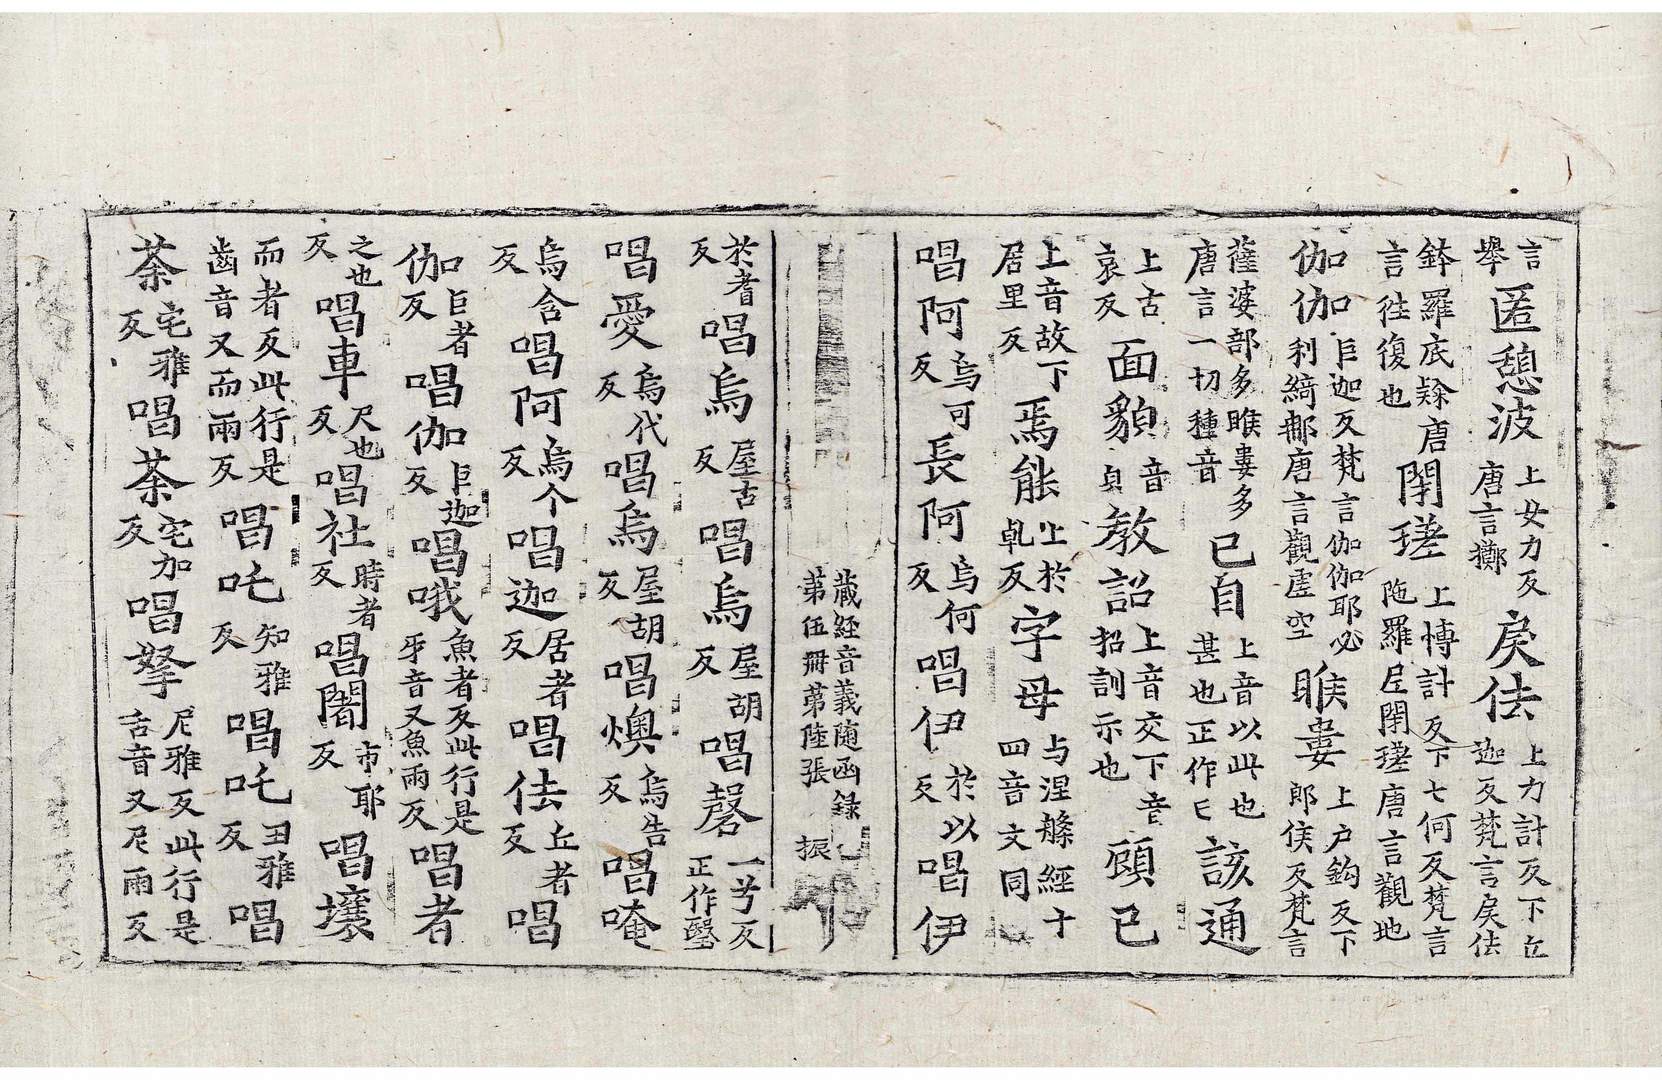 言舉匿憩波上女力反唐言擲戾佉上力計反下丘迦反梵言戾佉
鉢羅底唐言往復也閉瑳上愽計反下七何反梵言陁羅尼閉瑳唐言觀地
伽伽巨迦反梵言伽伽耶必利綺那唐言觀虛空睺婁上户鈎反下郎侯反梵言
薩婆部多睺婁多唐言一切種音已自上音以此也甚也正作已該通
上古哀反面貌音皃教詔上音交下音招訓示也顧已
上音故下居里反焉能上於乹反字母与涅槃經十四音文同
唱阿烏可反長阿烏何反唱伊於以反唱伊
藏經音義隨函録
第伍冊第陸張 振
於耆反唱烏屋古反唱烏屋胡反唱磬一兮反正作毉
唱愛烏代反唱烏屋胡反唱燠烏告反唱唵
烏含反唱阿烏个反唱迦居者反唱佉丘者反唱
伽巨者反唱伽巨迦反唱哦魚者反此行是牙音又魚兩反唱者
之也反唱車尺也反唱社時者反唱闍市耶反唱壤
而者反此行是齒音又而兩反唱吒知雅反唱吒丑雅反唱
荼宅雅反唱荼宅加反唱拏尼雅反此行是舌音又尼兩反